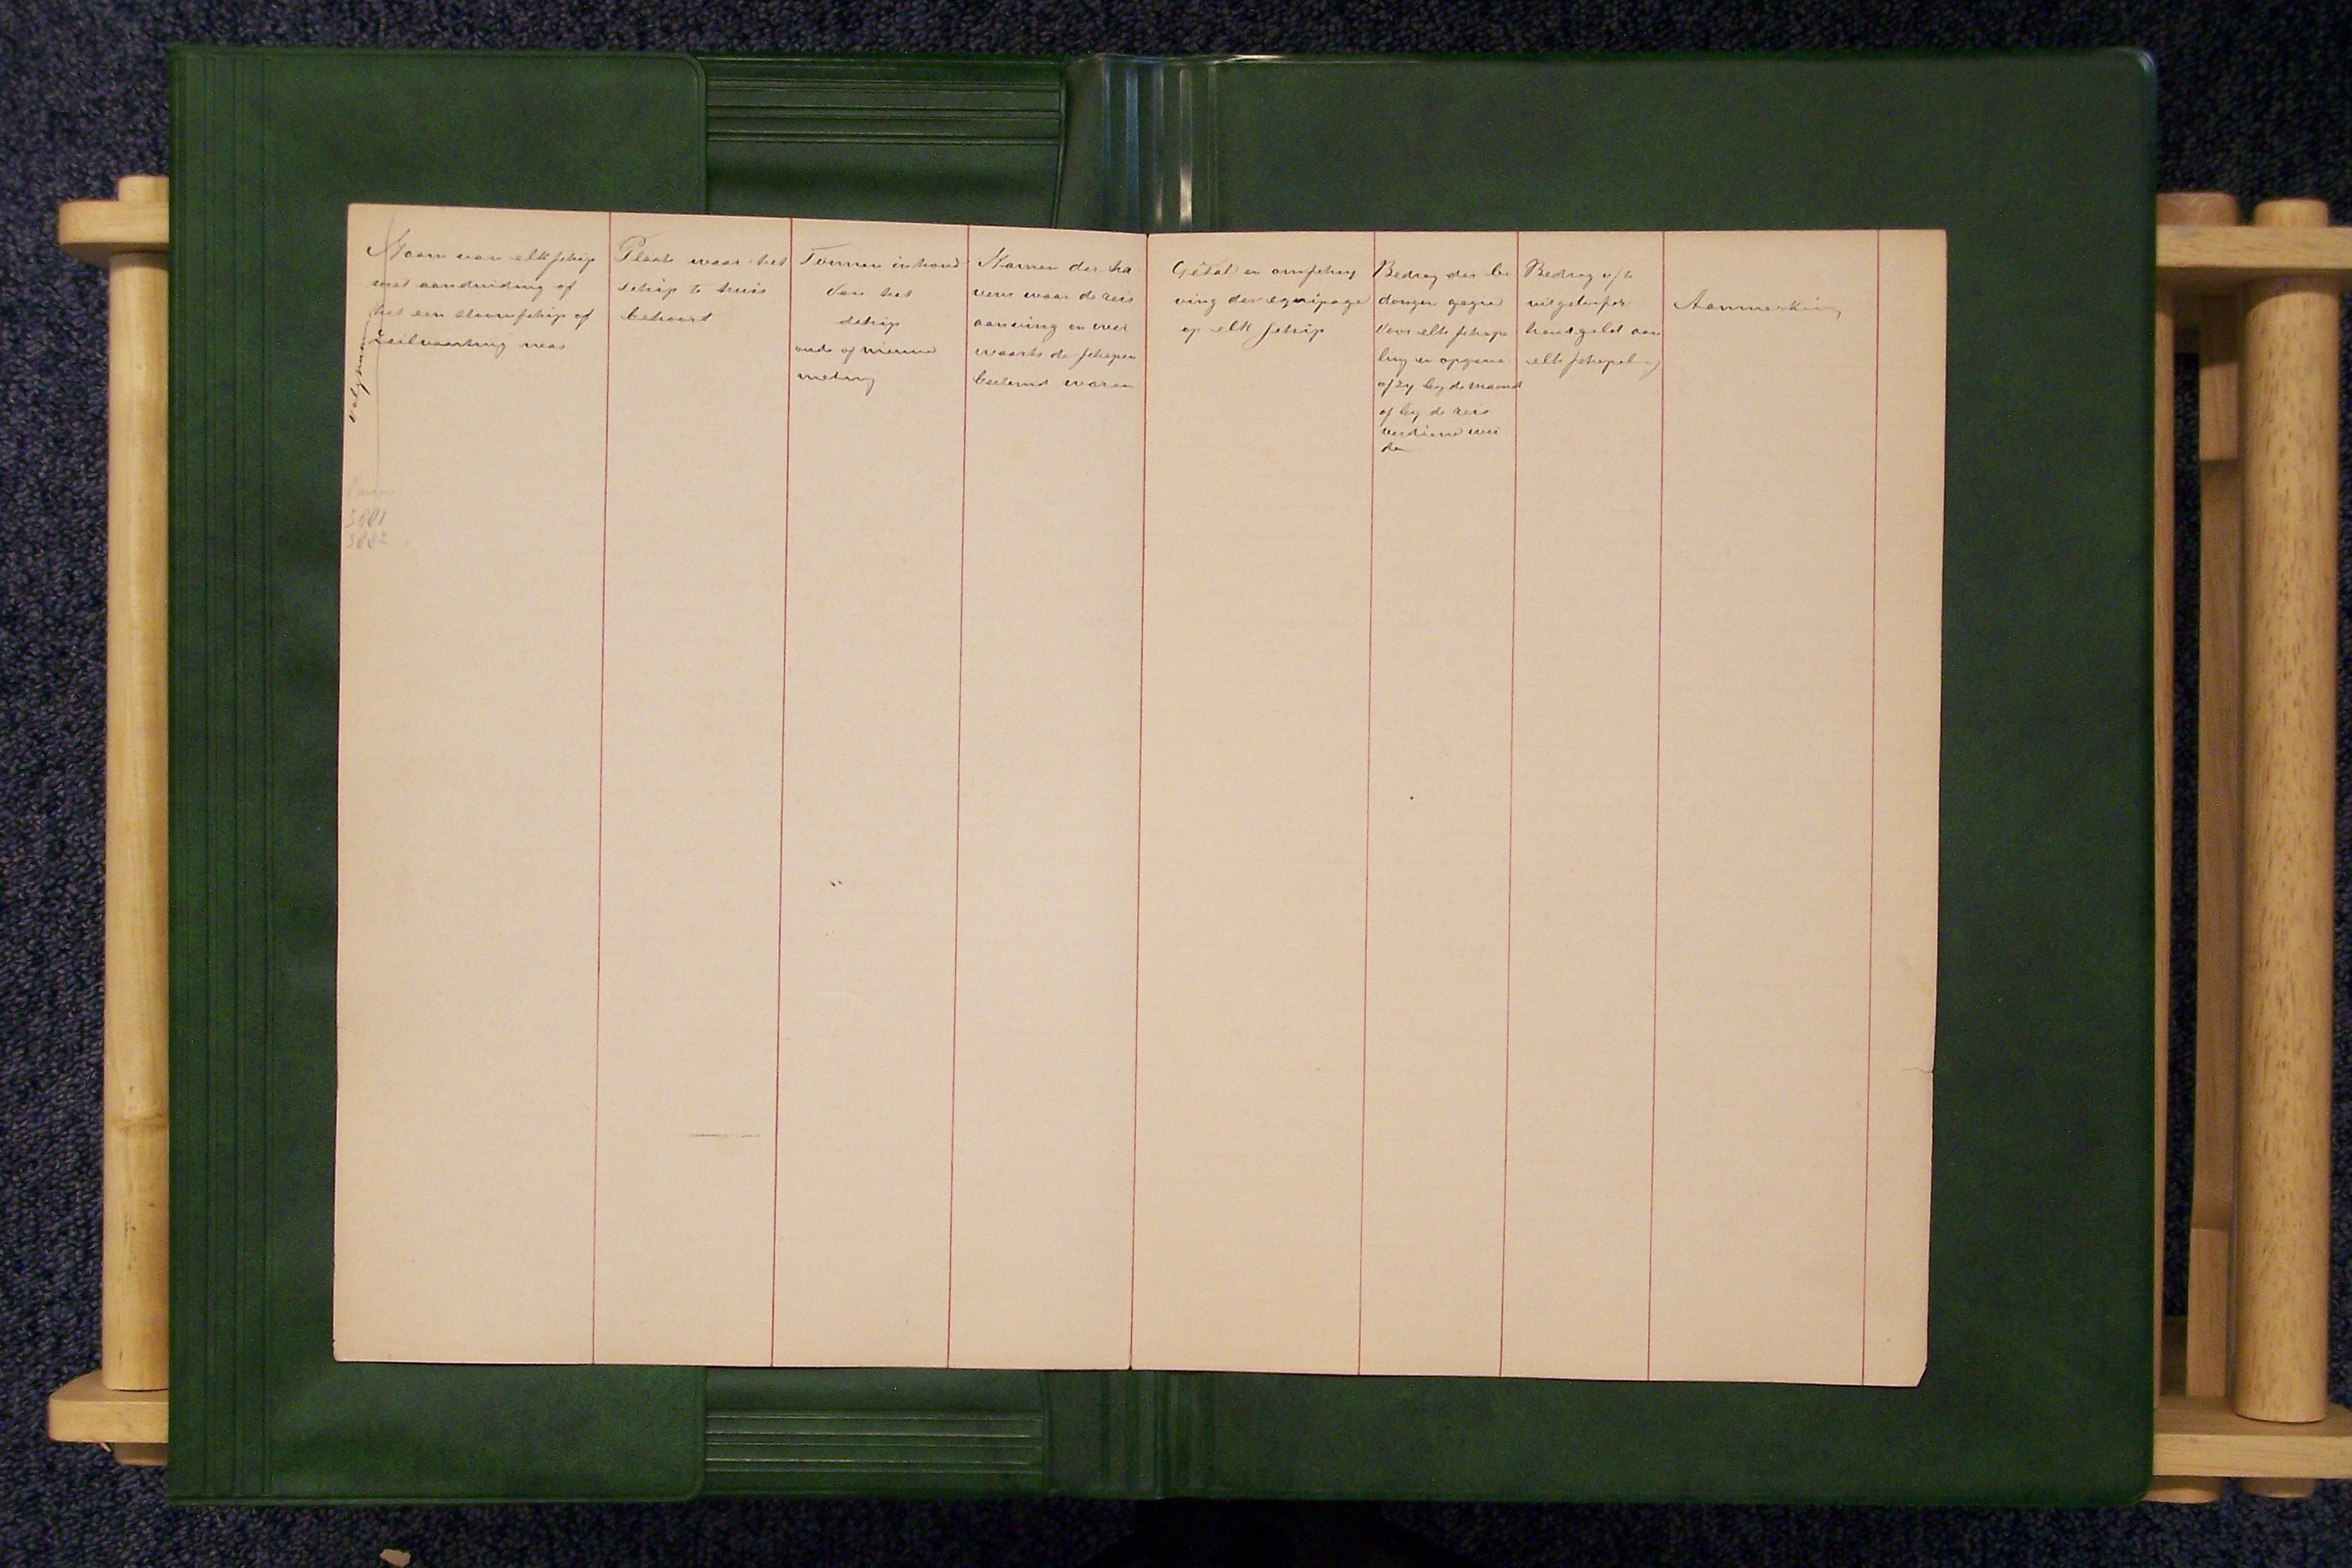 Volgnummer
Naam van elk schip
met aanduiding of
het een stoomschip of
zeilvaartuig was
3881
3882
Plaats waar het
schip te huis
behoort
Tonnen inhoud
van het
schip
oude of nieuwe
meting
Namen der ha
vens waar de reis
aanving en wer
waarts de schepen
bestemd waren
Getal en omschrij
ving der equipage
op elk schip
Bedrag der be
dongen gagie
voor elk schepe
ling en opgave
of zy by de maand
of by de reis
verdiend wer
den
Bedrag v/h
handgeld aan
elk schepeling
Aanmerking